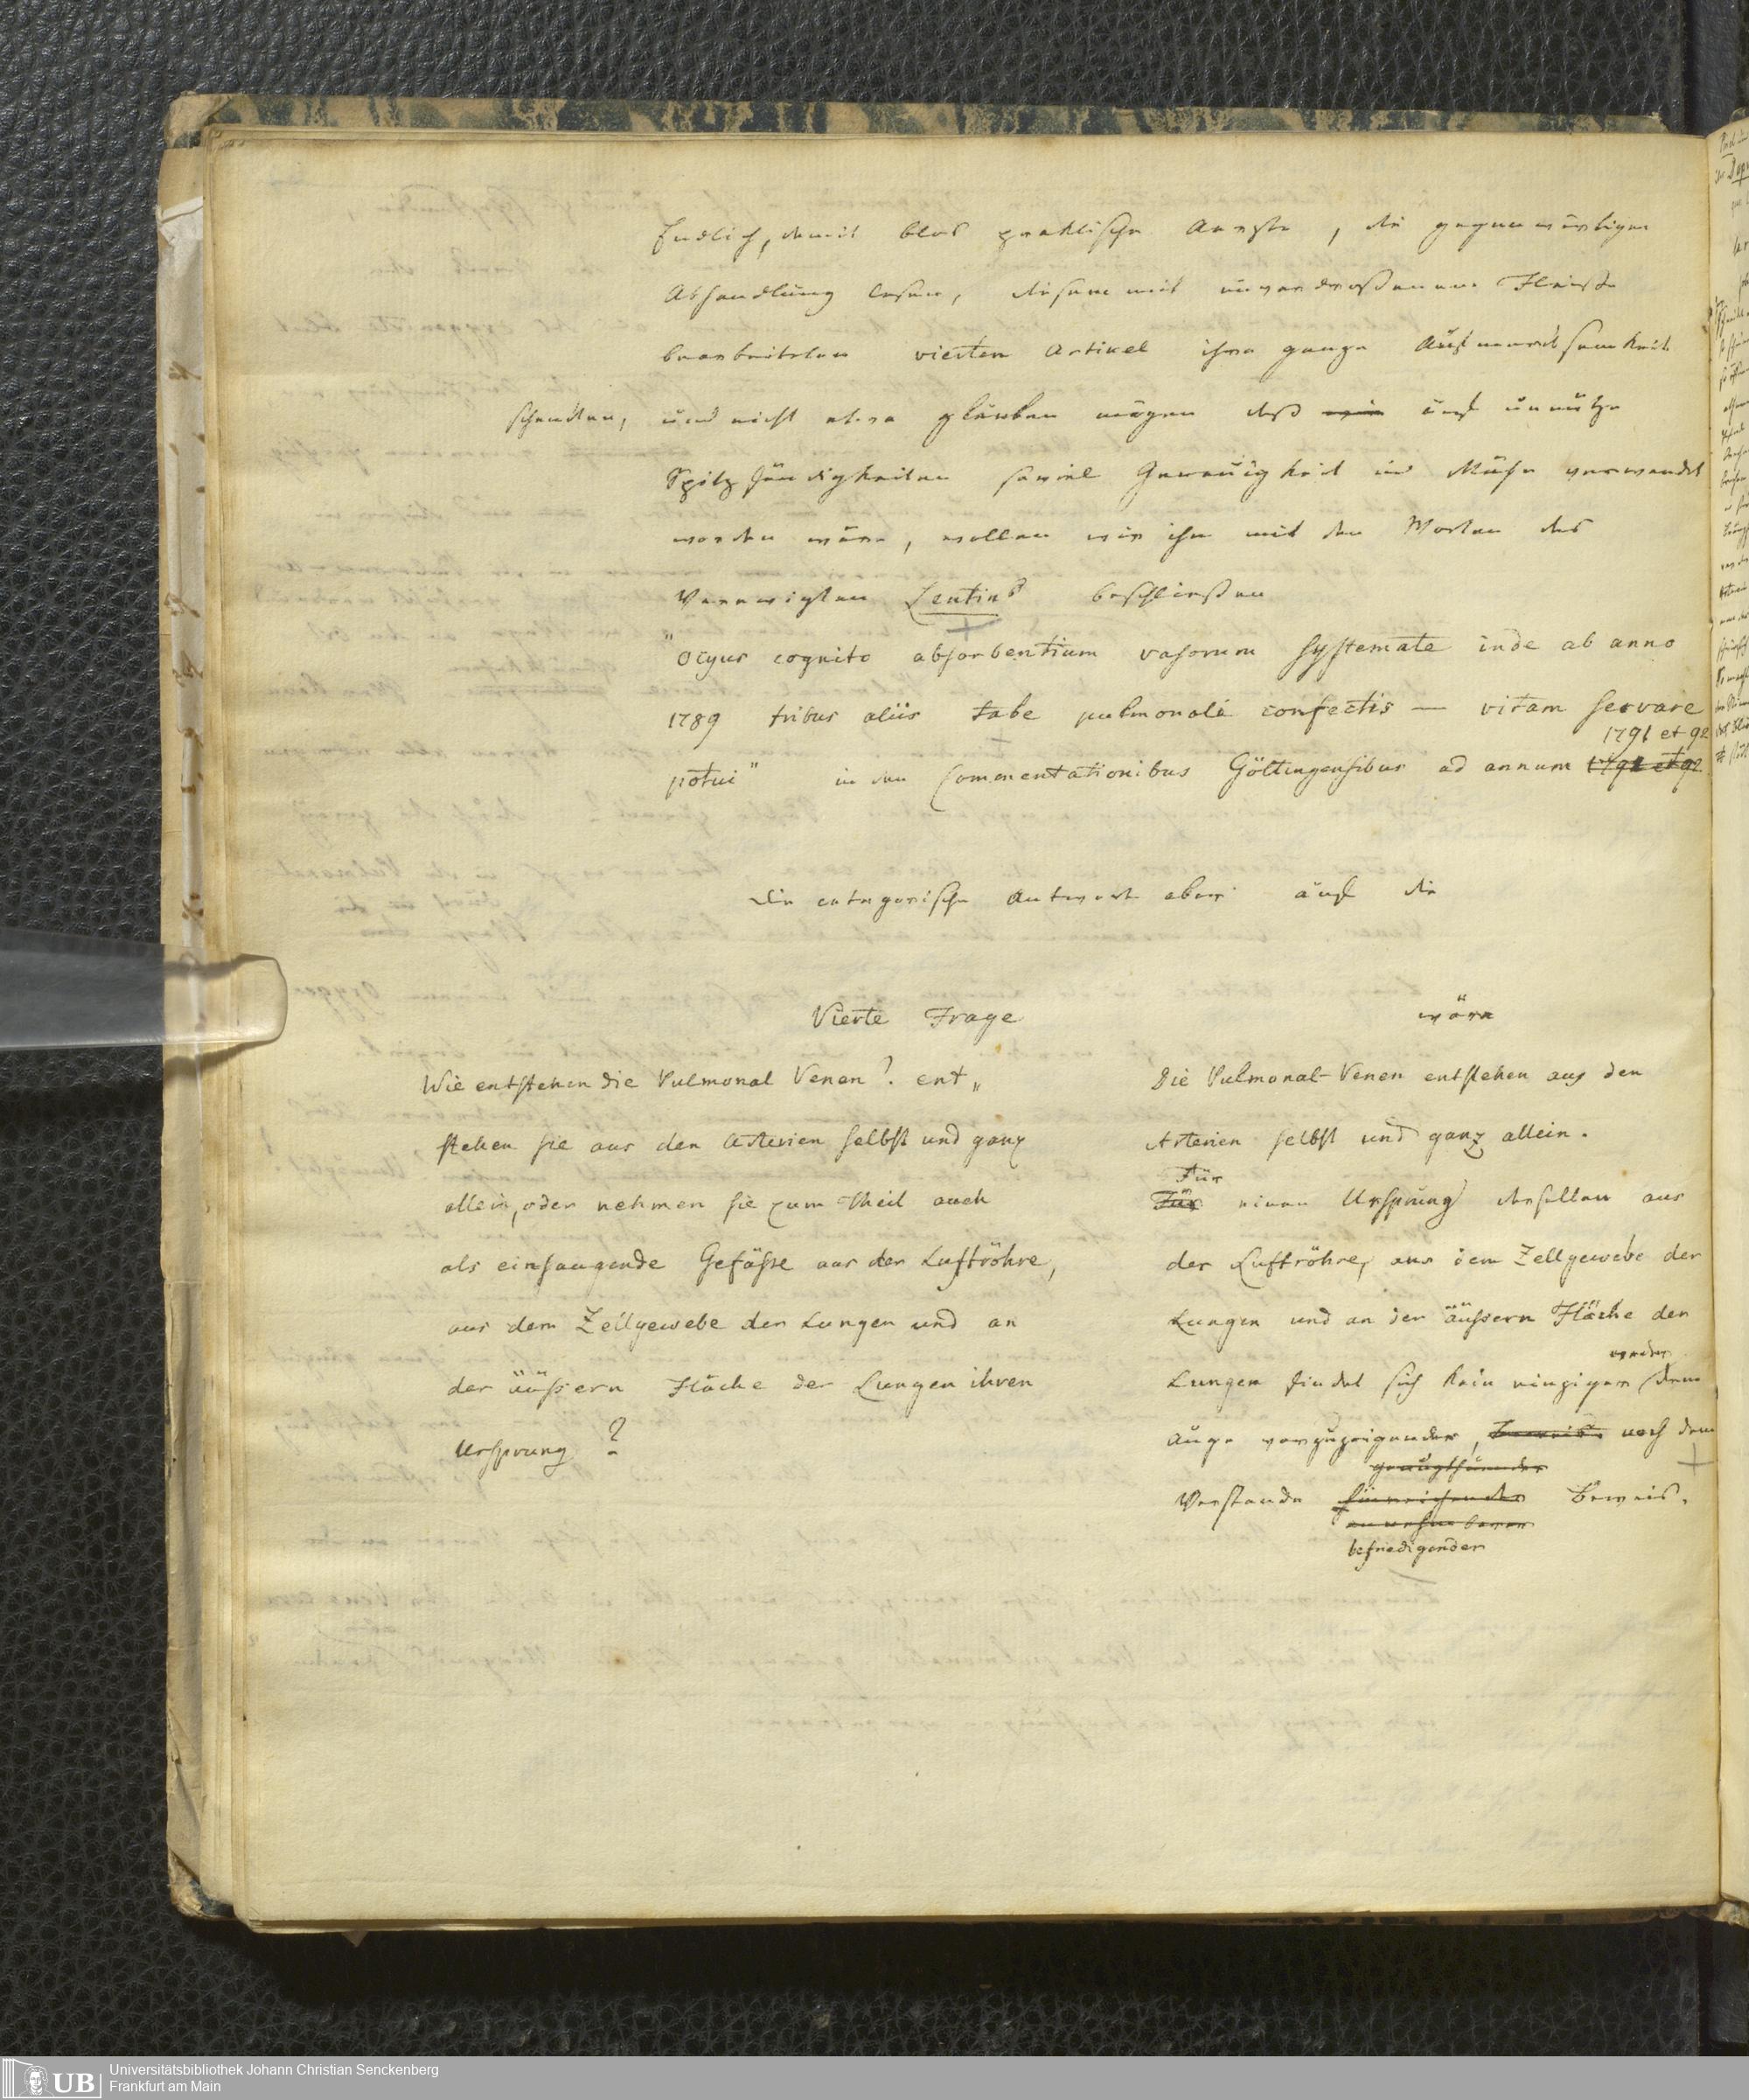 Endlich, damit blos praktische Aerzte, die gegenwärtigen
Abhandlung lesen, diesem mit unverdroßenem Fleiße
bearbeiteten vierten Artikel ihre ganze Aufmerksamkeit
schenken, und nicht etwa glauben mögen daß auf unnütze
Spitzfündigkeiten soviel Genauigkeit und Mühe verwendet
worden wäre, wollen wir ihn mit den Worten des
Verewigten Lentins beschließen
"Ocyus cognito absorbentium vasorum systemate inde ab anno
1789 tribus aliis tabe pulmonali confectis — vitam servare
1791 et 92
potui" in den Commentationibus Göttingensibus ad annum 1791 et 92
Die categorische Antwort aber auf die
Vierte Frage
wäre
Wie entstehen die Pulmonal Venen? ent„
stehen sie aus den Arterien selbst und ganz
allein, oder nehmen sie zum Theil auch
als einsaugende Gefässe aus der Luftröhre,
aus dem Zellgewebe der Lungen und an
der äüssern Fläche der Lungen ihren
Ursprung?
Die Pulmonal-Venen entstehen aus den
Arterien selbst und ganz allein.
Für
Für einen Ursprung derselben aus
der Luftröhre, aus dem Zellgewebe der
Lungen und an der äüssern Fläche der
weder
Lungen findet sich kein einziger dem
Auge vorzuzeigender, Beweis noch dem
genugthuender
Verstande hinreichender Beweis.
annehmbarer
befriedigender
Universitätsbibliothek Johann Christian Senckenberg
Frankfurt am Main
UB